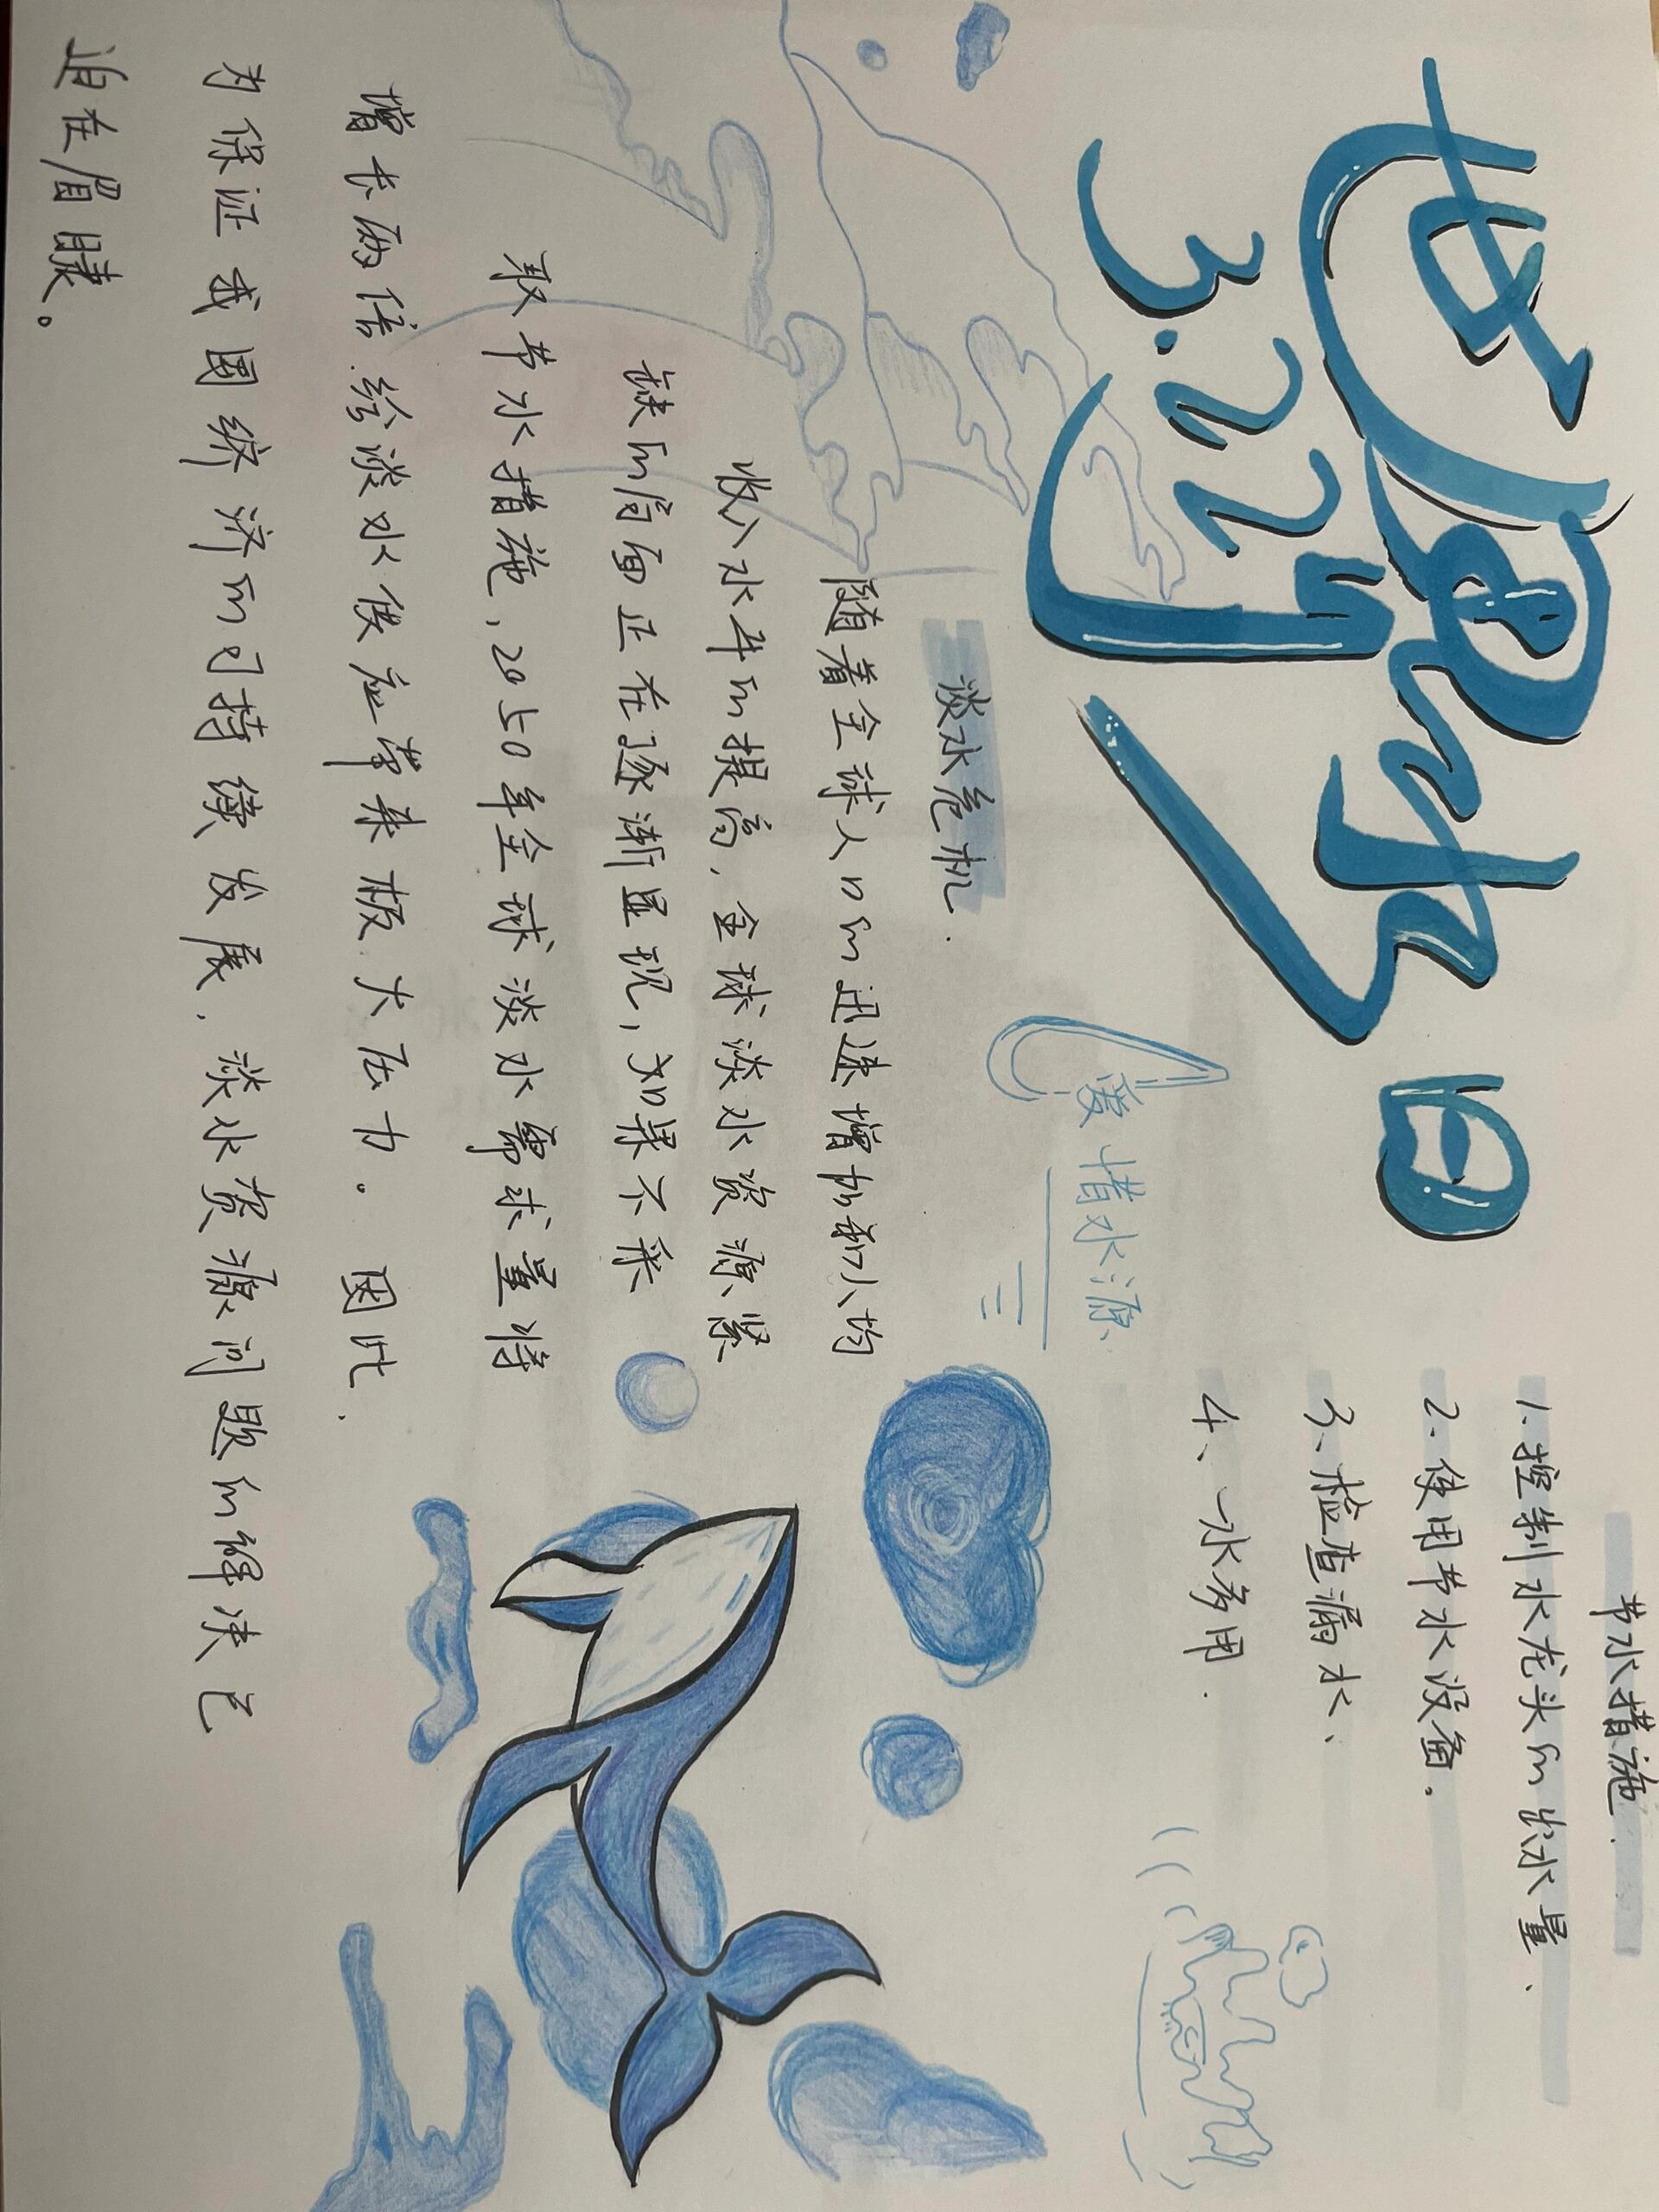 世界水日
3.22
节水措施.
1.控制水龙头的出水量.
2.使用节水设备.
3、检查漏水、
4、一水多用.
爱惜水源、
淡水危机.
随着全球人口的迅速增加和人均
收入水平的提高,全球淡水资源紧
缺的局面正在逐渐显现,如果不采
取节水措施,2050年全球淡水需求量将
增长两倍.给淡水供应带来极大压力。因此.
为保证我国经济的可持续发展.淡水资源问题的解决已
迫在眉睫。